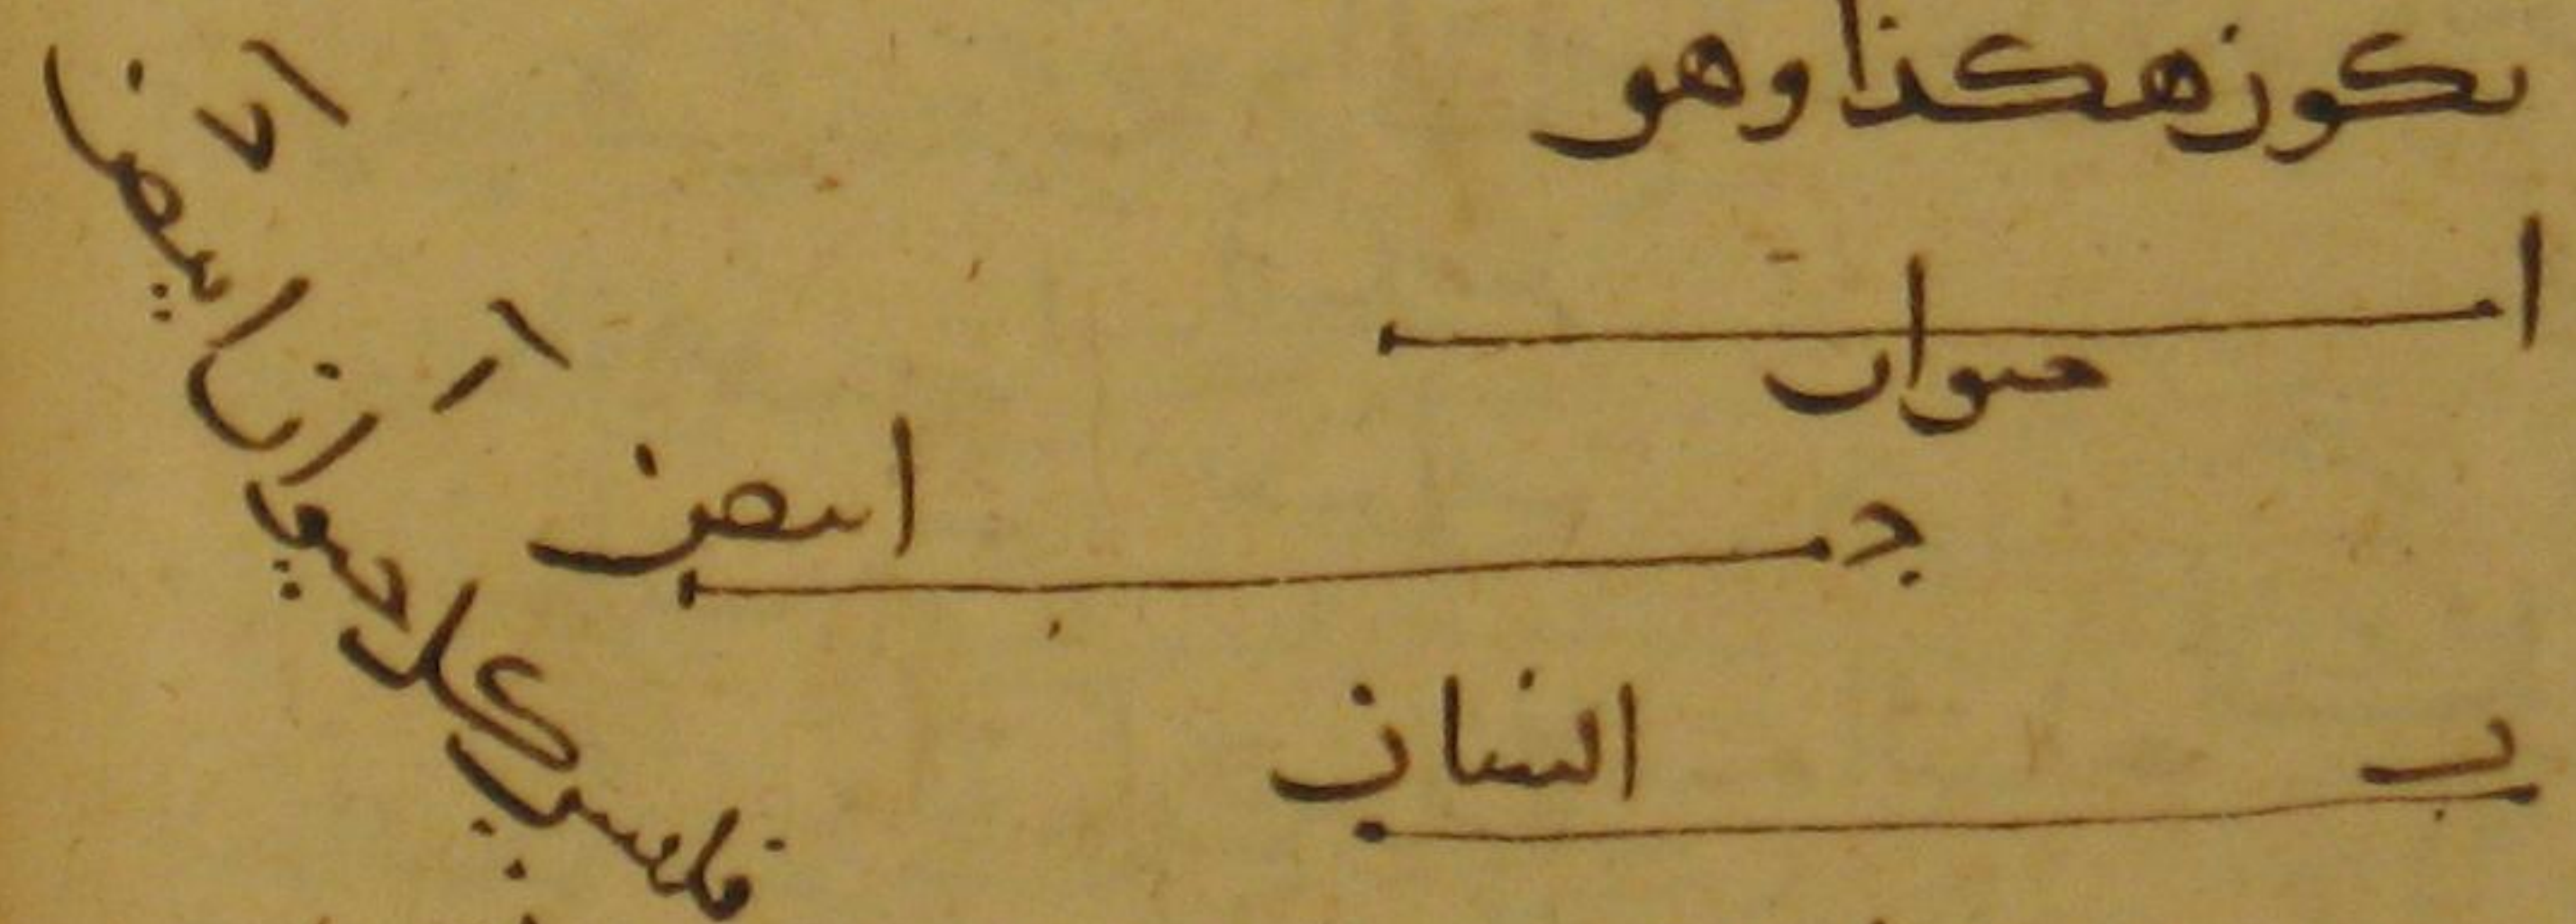 يكون هكذا وهو
ا حيوان
ج ابيض
ب انسان
فليس كل حيوان ابيض